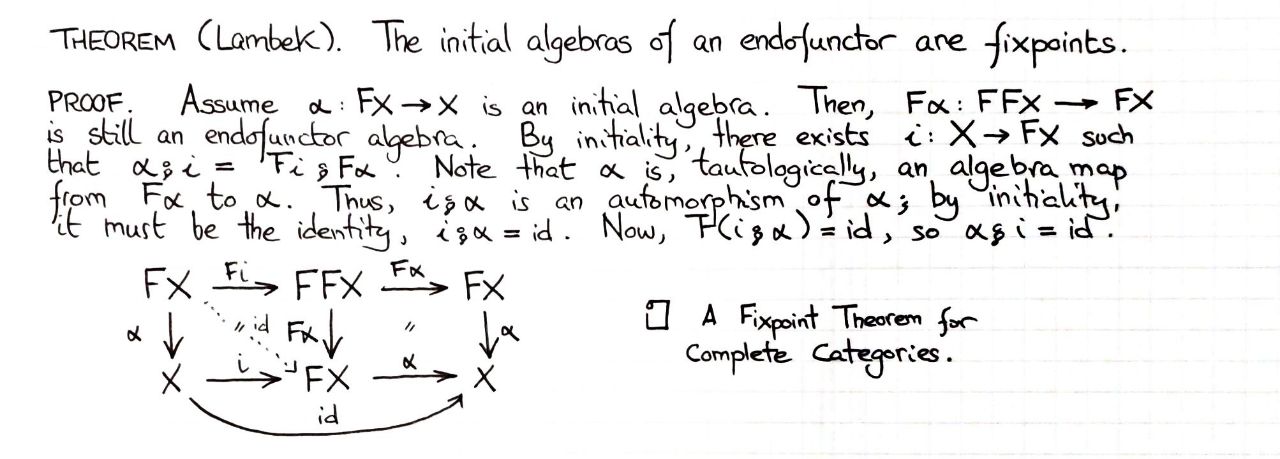 THEOREM (Lambek). The initial algebras of an endofunctor are fixpoints.
PROOF. Assume α : FX → X is an initial algebra. Then, Fα : FFX → FX
is still an endofunctor algebra. By initiality, there exists i : X → FX such
that α⨾i = Fi⨾Fα. Note that α is, tautologically, an algebra map
from Fα to α. Thus, i⨾α is an automorphism of α; by initiality,
it must be the identity, i⨾α = id. Now, F(i⨾α) = id, so α⨾i = id.
FX Fi→ FFX Fα→ FX
α ↓ 〃 id Fα ↓ 〃 ↓ α
X i→ FX α→ X
id
□ A Fixpoint Theorem for
Complete Categories.